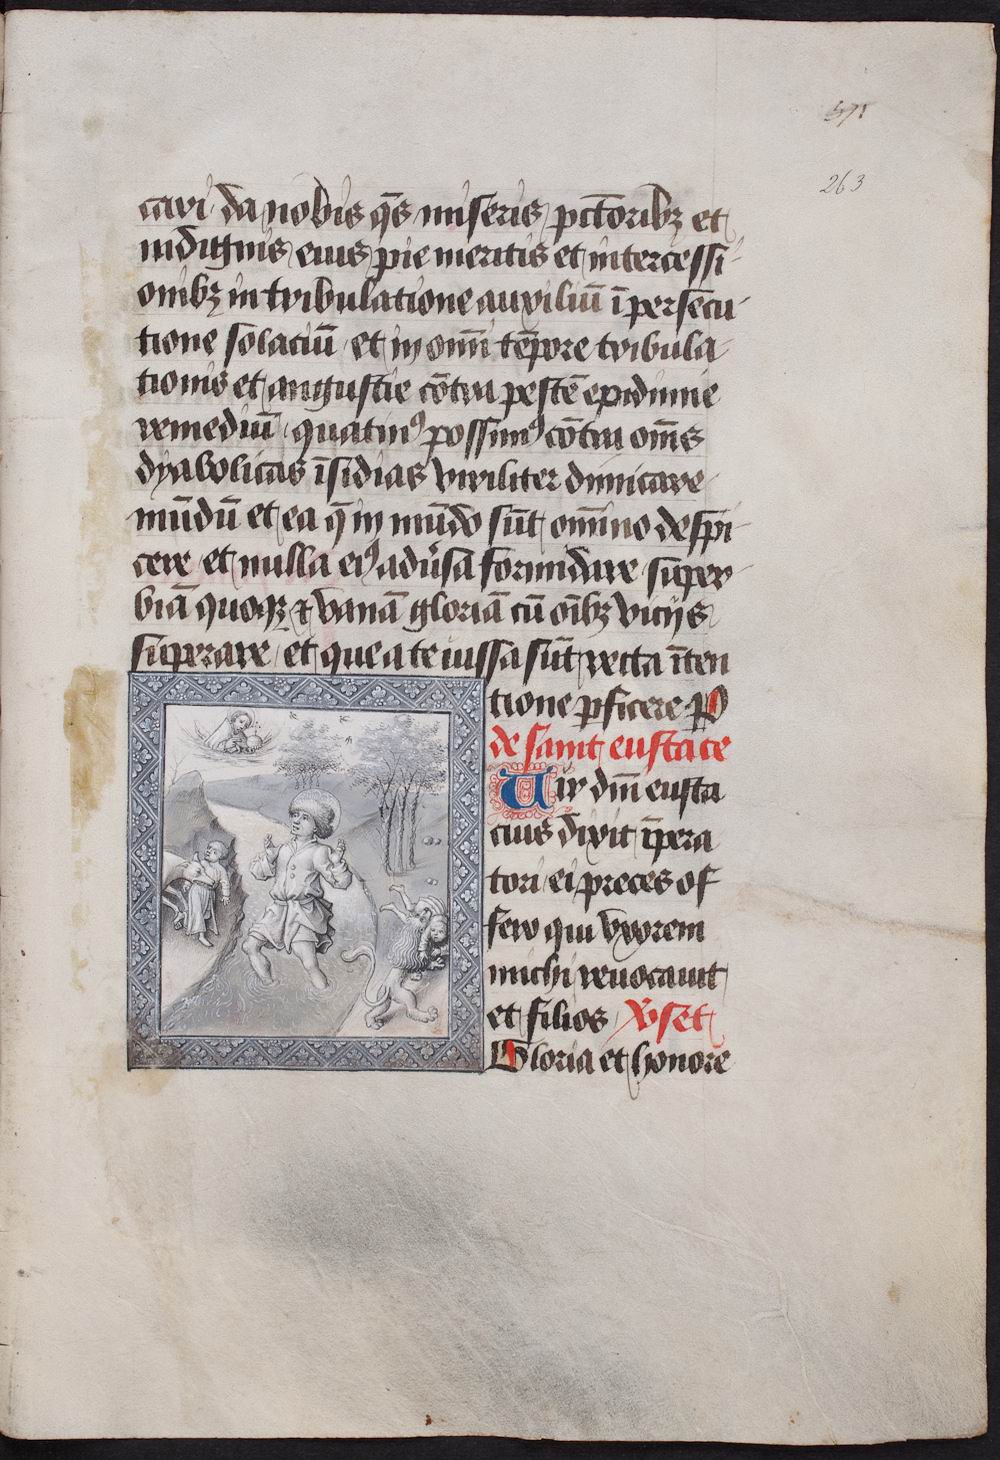 263
cavi da nobis q̄s miseris pcto̅rib⁊ et
indignis eius pie meritis et intercessi-
onib⁊ in tribulatione auxiliū ī persecu-
tione solaciū et in omni tēpore tribula-
tionis et angustie cōtra pestē epidimie
remediū quatinꝰ possimꝰ cōtra om̄s
dyabolicas īsidias viriliter dimicare
mūdū et ea q̄ in mūdo sūt om̄ino despi-
cere et nulla eiꝰ adūsa formidare super-
biā quoq⁊ ⁊ vanā gloriā cū oīb⁊ vicijs
superare et que a te iussa sūt recta īten
tione ꝑficere P
de saint eustace
Vir dm̄ eusta
cius dixit īpera
tori ei preces of
fero qui vxorem
michi revocavit
et filios v̄set
Gloria et honore